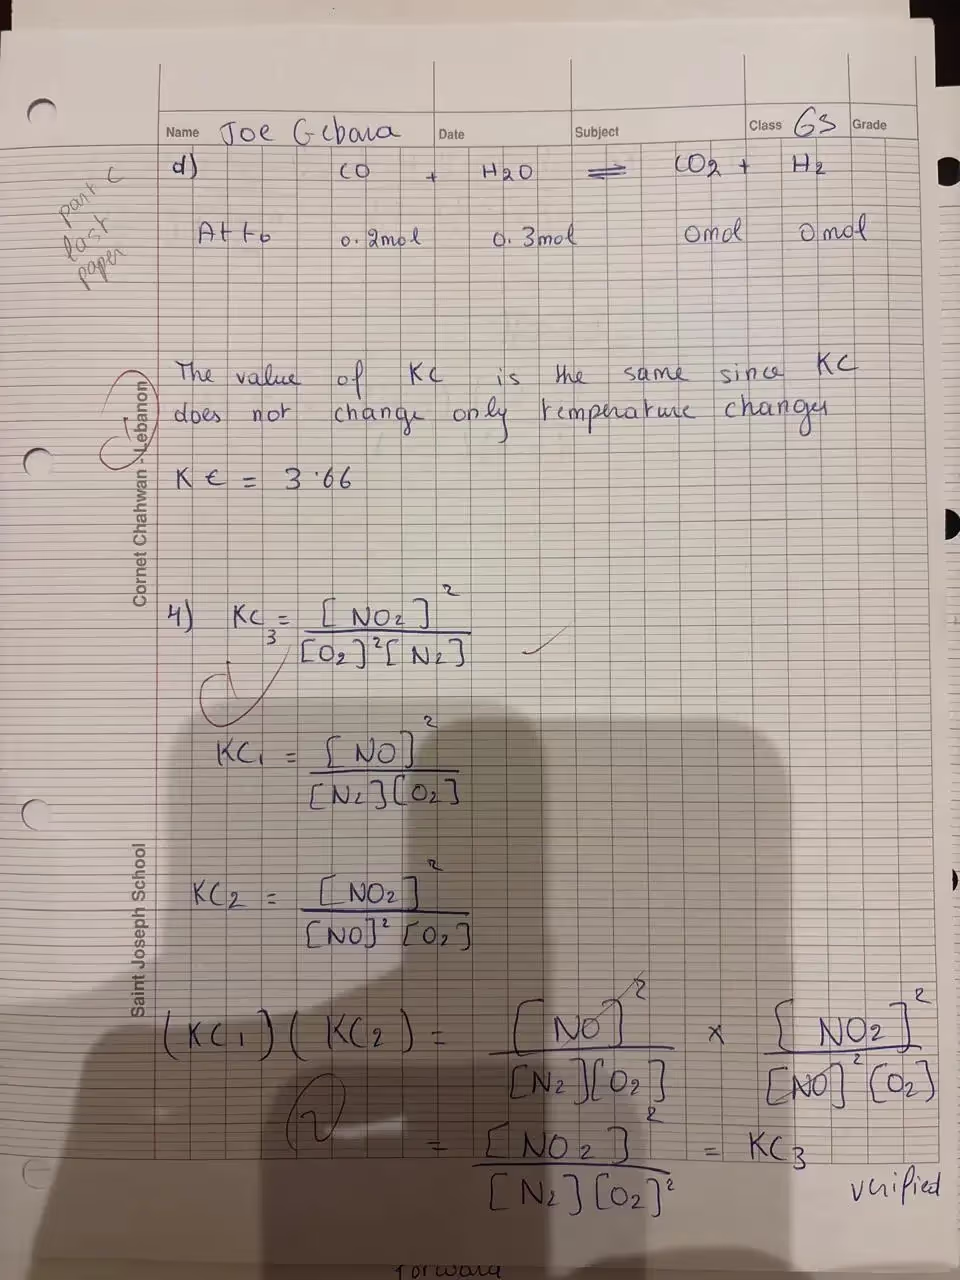 Name Joe Gebara Date Subject Class GS Grade
part C
last
paper
d) CO + H2O ⇌ CO2 + H2
At to 0.2mol 0.3mol 0mol 0mol
The value of KC is the same since KC
does not change only temperature changes
KC = 3.66
Cornet Chahwan - Lebanon
4) KC3 = [NO2]² / [O2]²[N2] ✓
KC1 = [NO]² / [N2][O2]
KC2 = [NO2]² / [NO]²[O2]
Saint Joseph School
(KC1)(KC2) = [NO]² / [N2][O2] × [NO2]² / [NO]²[O2]
= [NO2]² / [N2][O2]² = KC3
verified
forward